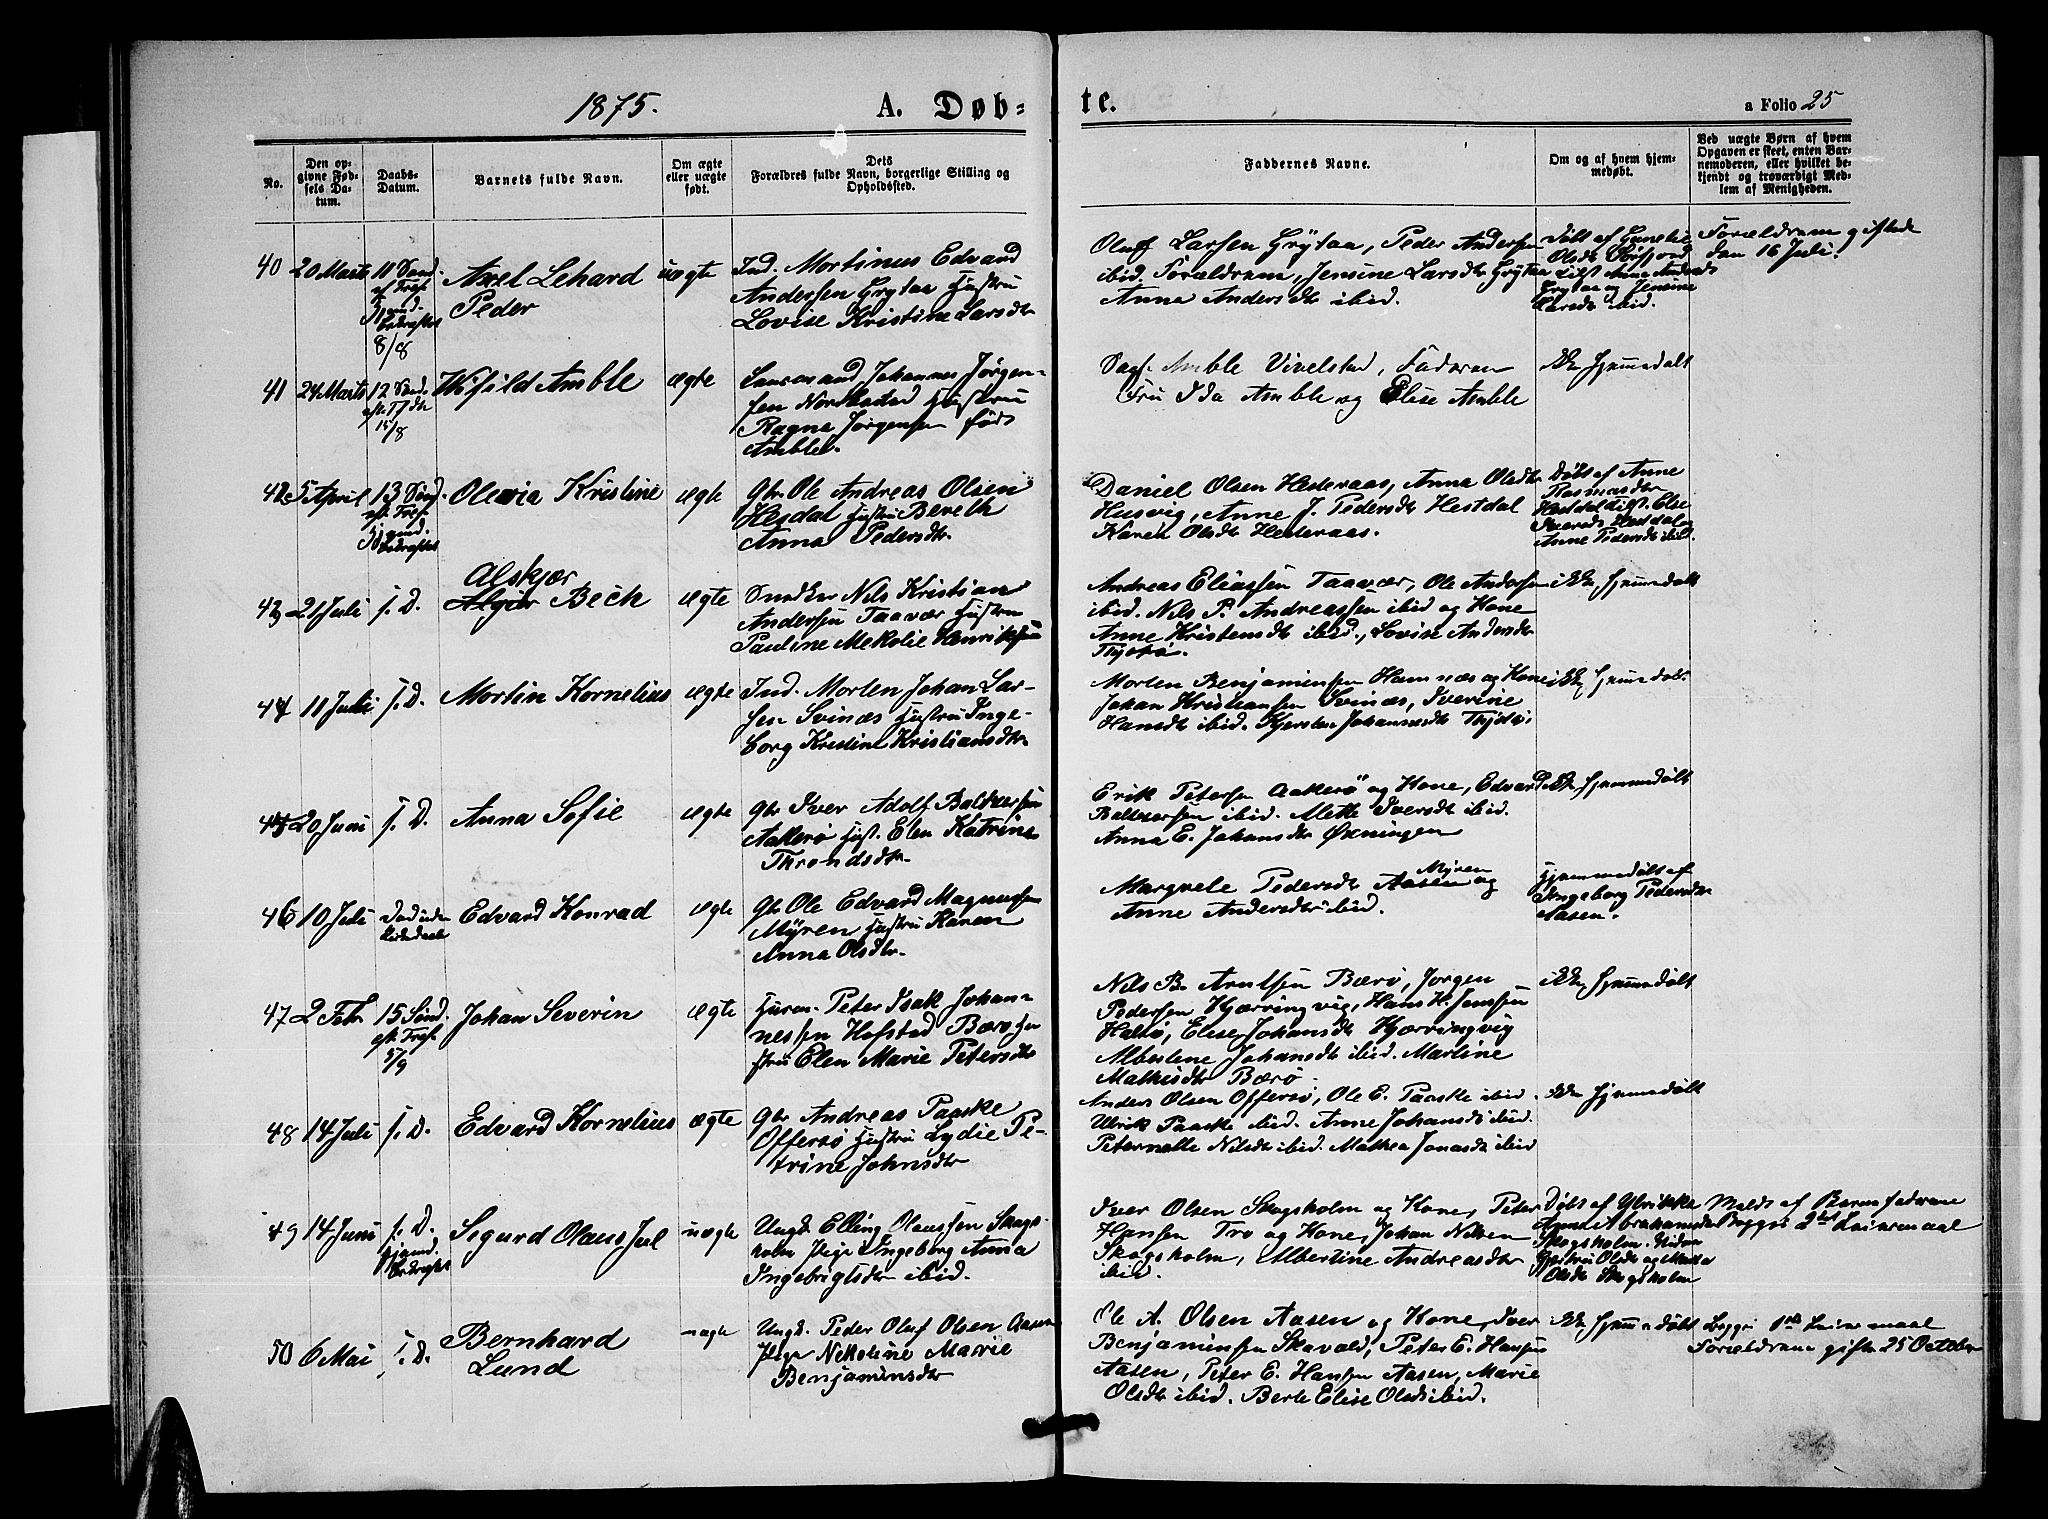 1875.
A. Døb-
te.
a Folio 25
No.
Den op-
givne Fød-
sels Da-
tum.
Daabs-
Datum.
Barnets fulde Navn.
Om ægte
eller uægte
født.
Dets
Forældres fulde Navn, borgerlige Stilling og
Opholdssted.
Faddernes Navne.
Om og af hvem hjem-
medøbt.
Ved uægte Børn af hvem
Opgaven er skeet, enten Bar-
nemoderen, eller hvilket be-
kjendt og troværdigt Med-
lem af Menigheden.
40
20 Marts
11 Sønd.
8/8
Axel Lehard
Peder
uægte
Ind. Martinus Edvard
Andersen Grytaa Hustru
Lovise Kristine Larsdtr
Oluf Larsen Grytaa, Peder Andersen
ibid. Forældrene, Jensine Larsdtr Grytaa
Anna Andersdtr ibid.
Forældrene giftede
den 16 Juli.
41
24 Marts
12 Sønd.
15/8
Amble
ægte
Johannes Jørgen-
sen Hustru
Ragna Jørgensen født
Amble.
Amble Vivelstad, Faderen
Fru Ida Amble og Elise Amble
ikke hjemmedøbt
42
5 April
13 Sønd.
Olevia Kristine
ægte
Gbr. Ole Andreas Olsen
Hesdal Hustru Bereth
Anna Pedersdtr.
Daniel Olsen Hesteraas, Anna Olsdtr
Husvig, Anne J. Pedersdtr Hestdal
Karen Olsdtr Hesteraas.
Døbt af Anne
Rasmusdtr
Anne Pedersdtr ibid.
43
21 Juli
s. D.
Alskjær
Bech
ægte
Nils Kristian
Andersen Taavær Hustru
Pauline
Andreas Eliassen Taavær, Ole Andersen
ibid. Nils P. Andreassen ibid og Kone
Anne Kristensdtr ibid., Lovise Andersdtr
ikke hjemmedøbt
44
11 Juli
s. D.
Mortin Kornelius
ægte
Ind. Morten Johan Lar-
sen Svinæs Hustru Inge-
borg Kristine Kristiansdtr.
Morten Benjaminsen Hamnæs og Kone
Johan Kristiansen Svinæs, Iverine
Hansdtr ibid. Kjersten Johannesdtr
ikke hjemmedøbt
45
20 Juni
s. D.
Anna Sofie
ægte
Gbr Iver Adolf Baltzersen
Aakerø Hust. Elen Katrine
Throndsdtr.
Erik Petersen Aakerø og Kone, Edvard
Baltzersen ibid. Mette Iversdtr ibid.
Anna E. Johansdtr Øxningen
ikke hjemmedøbt
46
10 Juli
Død uden
Edvard Konrad
ægte
Gbr Ole Edvard Magnussen
Myren Hustru Karen
Anna Olsdtr.
Margrete Pedersdtr Aasen og
Myren
Anne Andersdtr ibid.
Hjemmedøbt af
Ingeborg Pedersdtr
Aasen.
47
2 Febr
15 Sønd.
eft. Tref.
5/9
Johan Severin
ægte
Peter Isak Johan-
nessen Hofstad Bærø Hu-
stru Elen Marie Petersdtr
Nils B. Arntsen Bærø, Jørgen
Pedersen Hjærringvig, Hans H. Jenssen
Haltø, Elise Johansdtr Hjærringvig
Albertine Johansdtr ibid. Martine
Mathisdtr Bærø
ikke hjemmedøbt
48
14 Juli
s. D.
Edvard Kornelius
ægte
Gbr Andreas Paaske
Offersø Hustru Lydie Pe-
trine Johnsdtr
Anders Olsen Offersø, Ole E. Paaske ibid.
Ulrik Paaske ibid. Anne Johansdtr ibid.
Peternelle Nilsdtr ibid. Mathea Jonasdtr ibid
ikke hjemmedøbt
49
14 Juni
s. D.
Sigurd Olaus Jul
uægte
Ungk. Elling Olaussen Skogs-
holm Pige Ingeborg Anna
Ingebrigtsdtr ibid.
Iver Olsen Skogsholm og Kone, Peter
Hansen Tro og Kone, Johan Nilsen
Skogsholm, Albertine Andreasdtr
ibid.
Døbt af Ulrikke
Skogsholm.
Olsdtr Skogsholm
Meldt af Barnefaderen
Begges 2det Leiermaal
50
6 Mai
s. D.
Bernhard
Lund
uægte
Ungk. Peder Oluf Olsen Aasen
Pige Nikoline Marie
Benjaminsdtr
Ole A. Olsen Aasen og Kone, Iver
Benjaminsen Skavald, Peter E. Hansen
Aasen, Peter E. Hansen Aasen, Marie
Olsdtr ibid. Berte Elise Olsdtr ibid.
ikke hjemmedøbt
Begges 1ste Leiermaal
Forældrene gifte 25 October